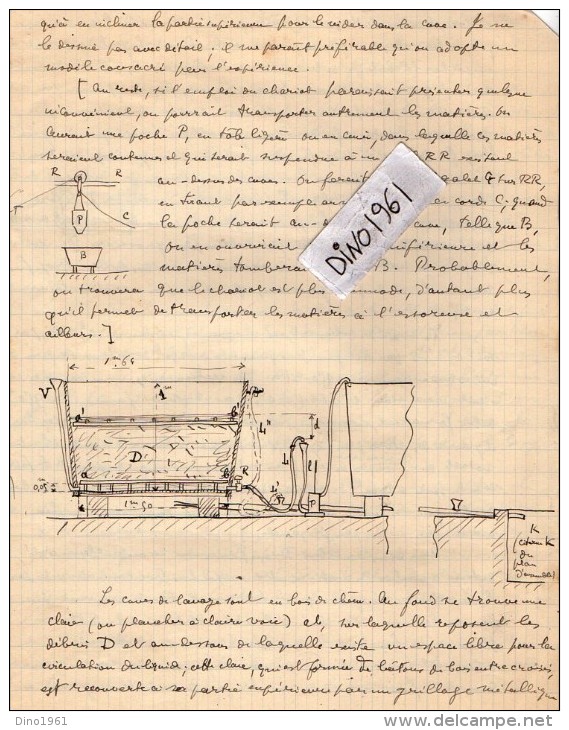 qu'à en incliner la partie supérieure pour le vider dans la cuve. Je ne
le dessine pas avec détail; il me paraît préférable qu'on adopte un
modèle consacré par l'expérience.
[Au reste, si l'emploi du chariot paraissait présenter quelque
inconvénient, on pourrait transporter autrement les matières. On
aurait une poche P, en tôle légère ou en cuir, dans laquelle les matières
seraient contenues et qui serait suspendue à un RR existant
R R
au-dessus des cuves. On ferait galet G sur RR,
en tirant par exemple en corde C; quand
T P C
la poche serait au- cuve, telle que B,
on en ouvrirait inférieure et les
B
matières tomberaient B. Probablement,
on trouvera que le chariot est plus commode, d'autant plus
qu'il permet de transporter les matières à l'essoreuse et
ailleurs.]
DINO1961
1m64
V 1m
a' b' d
D L" L l
a b R
0,05 L'
1m50 P
K
(citerne K
du
plan
d'ensemble)
Les cuves de lavage sont en bois de chêne. Au fond se trouve une
claie (ou plancher à claire voie) ab, sur laquelle reposent les
débris D et au dessous de laquelle existe un espace libre pour la
circulation du liquide; cette claie, qui est formée de bâtons de bois entrecroisés,
est recouverte à sa partie supérieure par un grillage métallique
Dino1961
www.delcampe.net